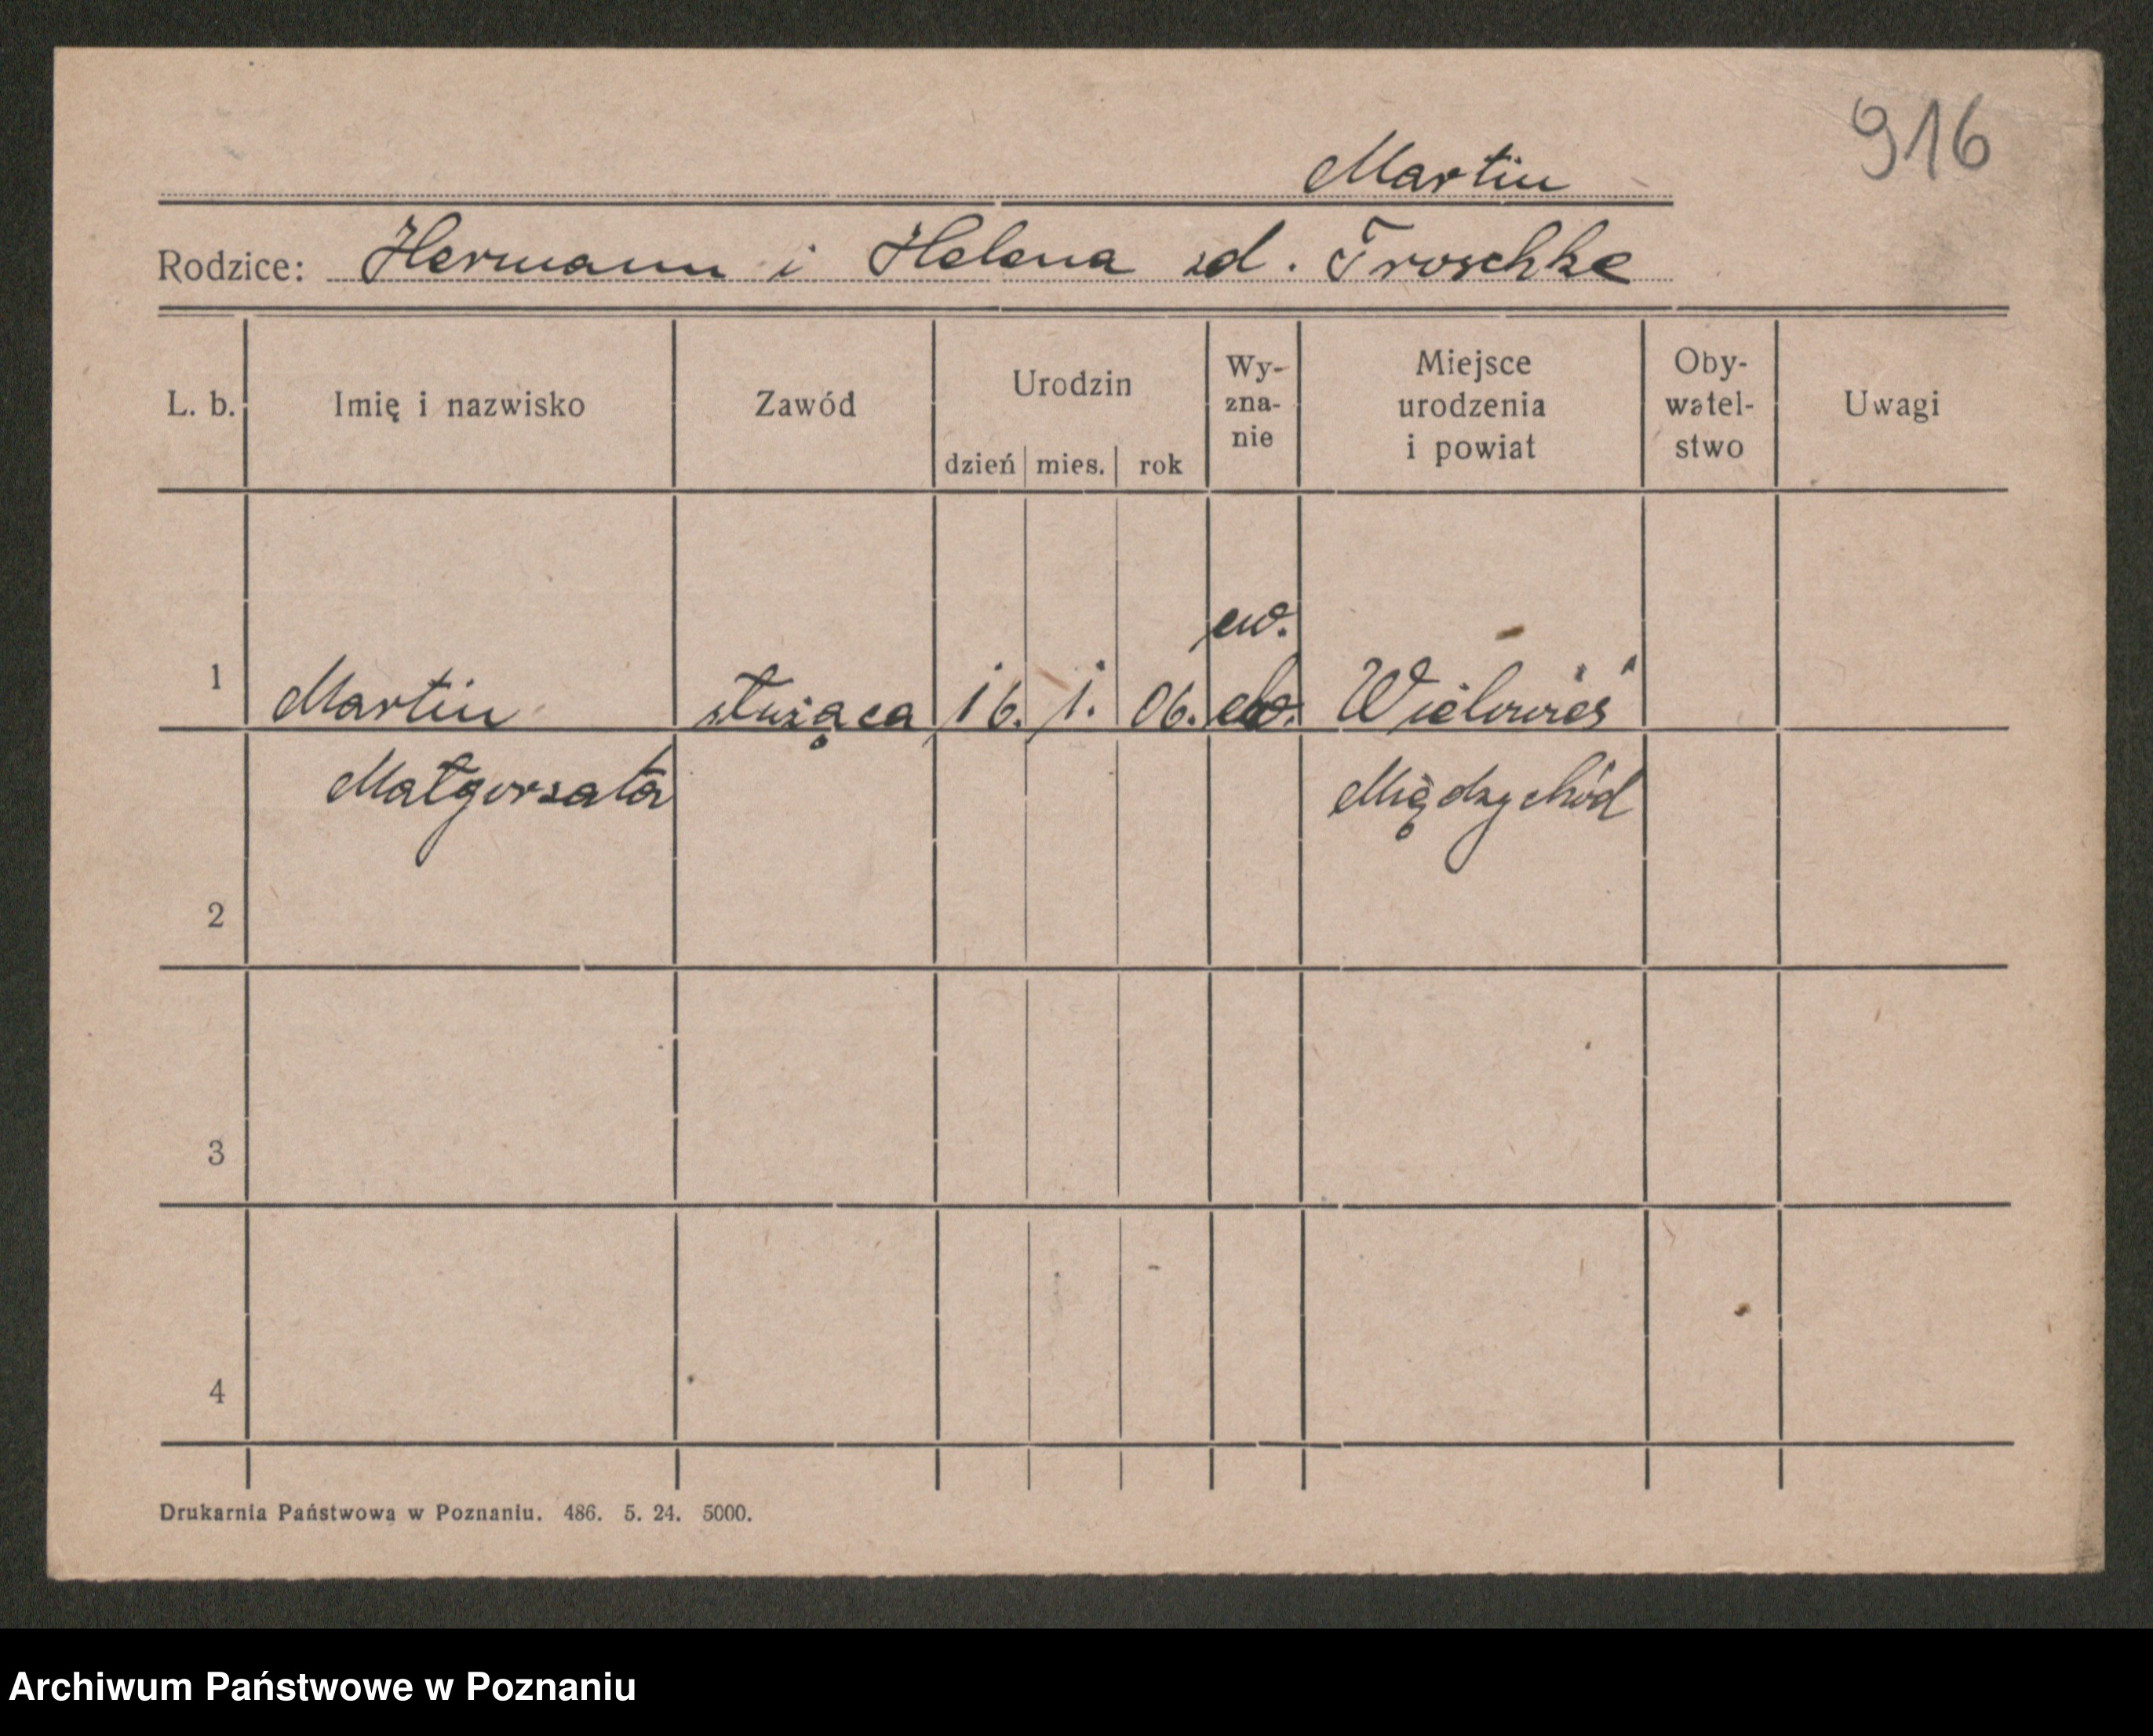 916
Martin
Rodzice: Hermann i Helena zd. Troschke
L. b. Imię i nazwisko Zawód Urodzin dzień mies. rok Wy-zna-nie Miejsce urodzenia i powiat Oby-watel-stwo Uwagi
ew.
1 Martin służąca 16. 1. 06. Wielowieś
Małgorzata Międzychód
2
3
4
Drukarnia Państwowa w Poznaniu. 486. 5. 24. 5000.
Archiwum Państwowe w Poznaniu